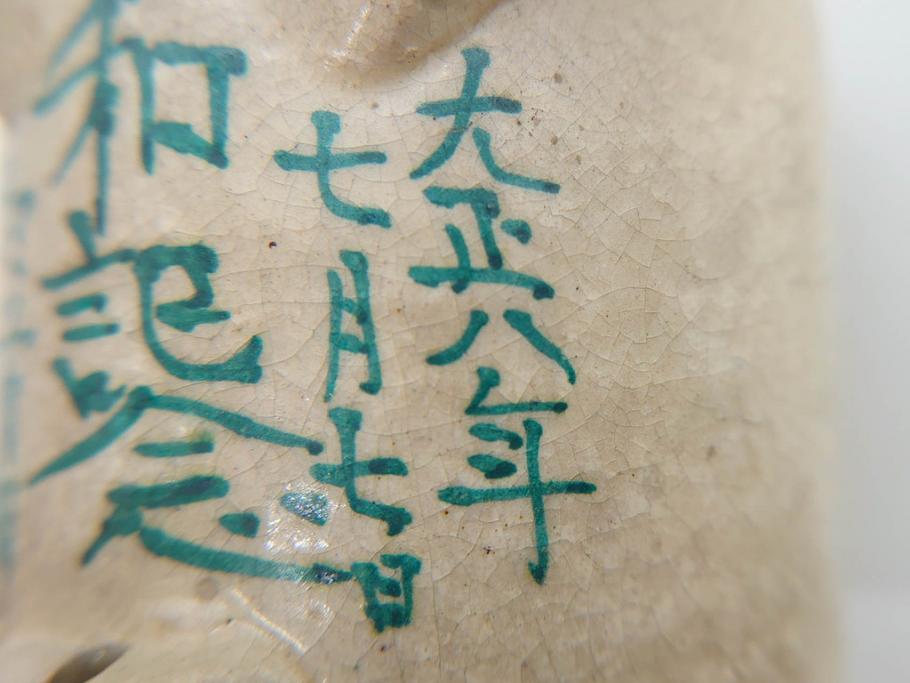 大正八年
七月七日
和記念